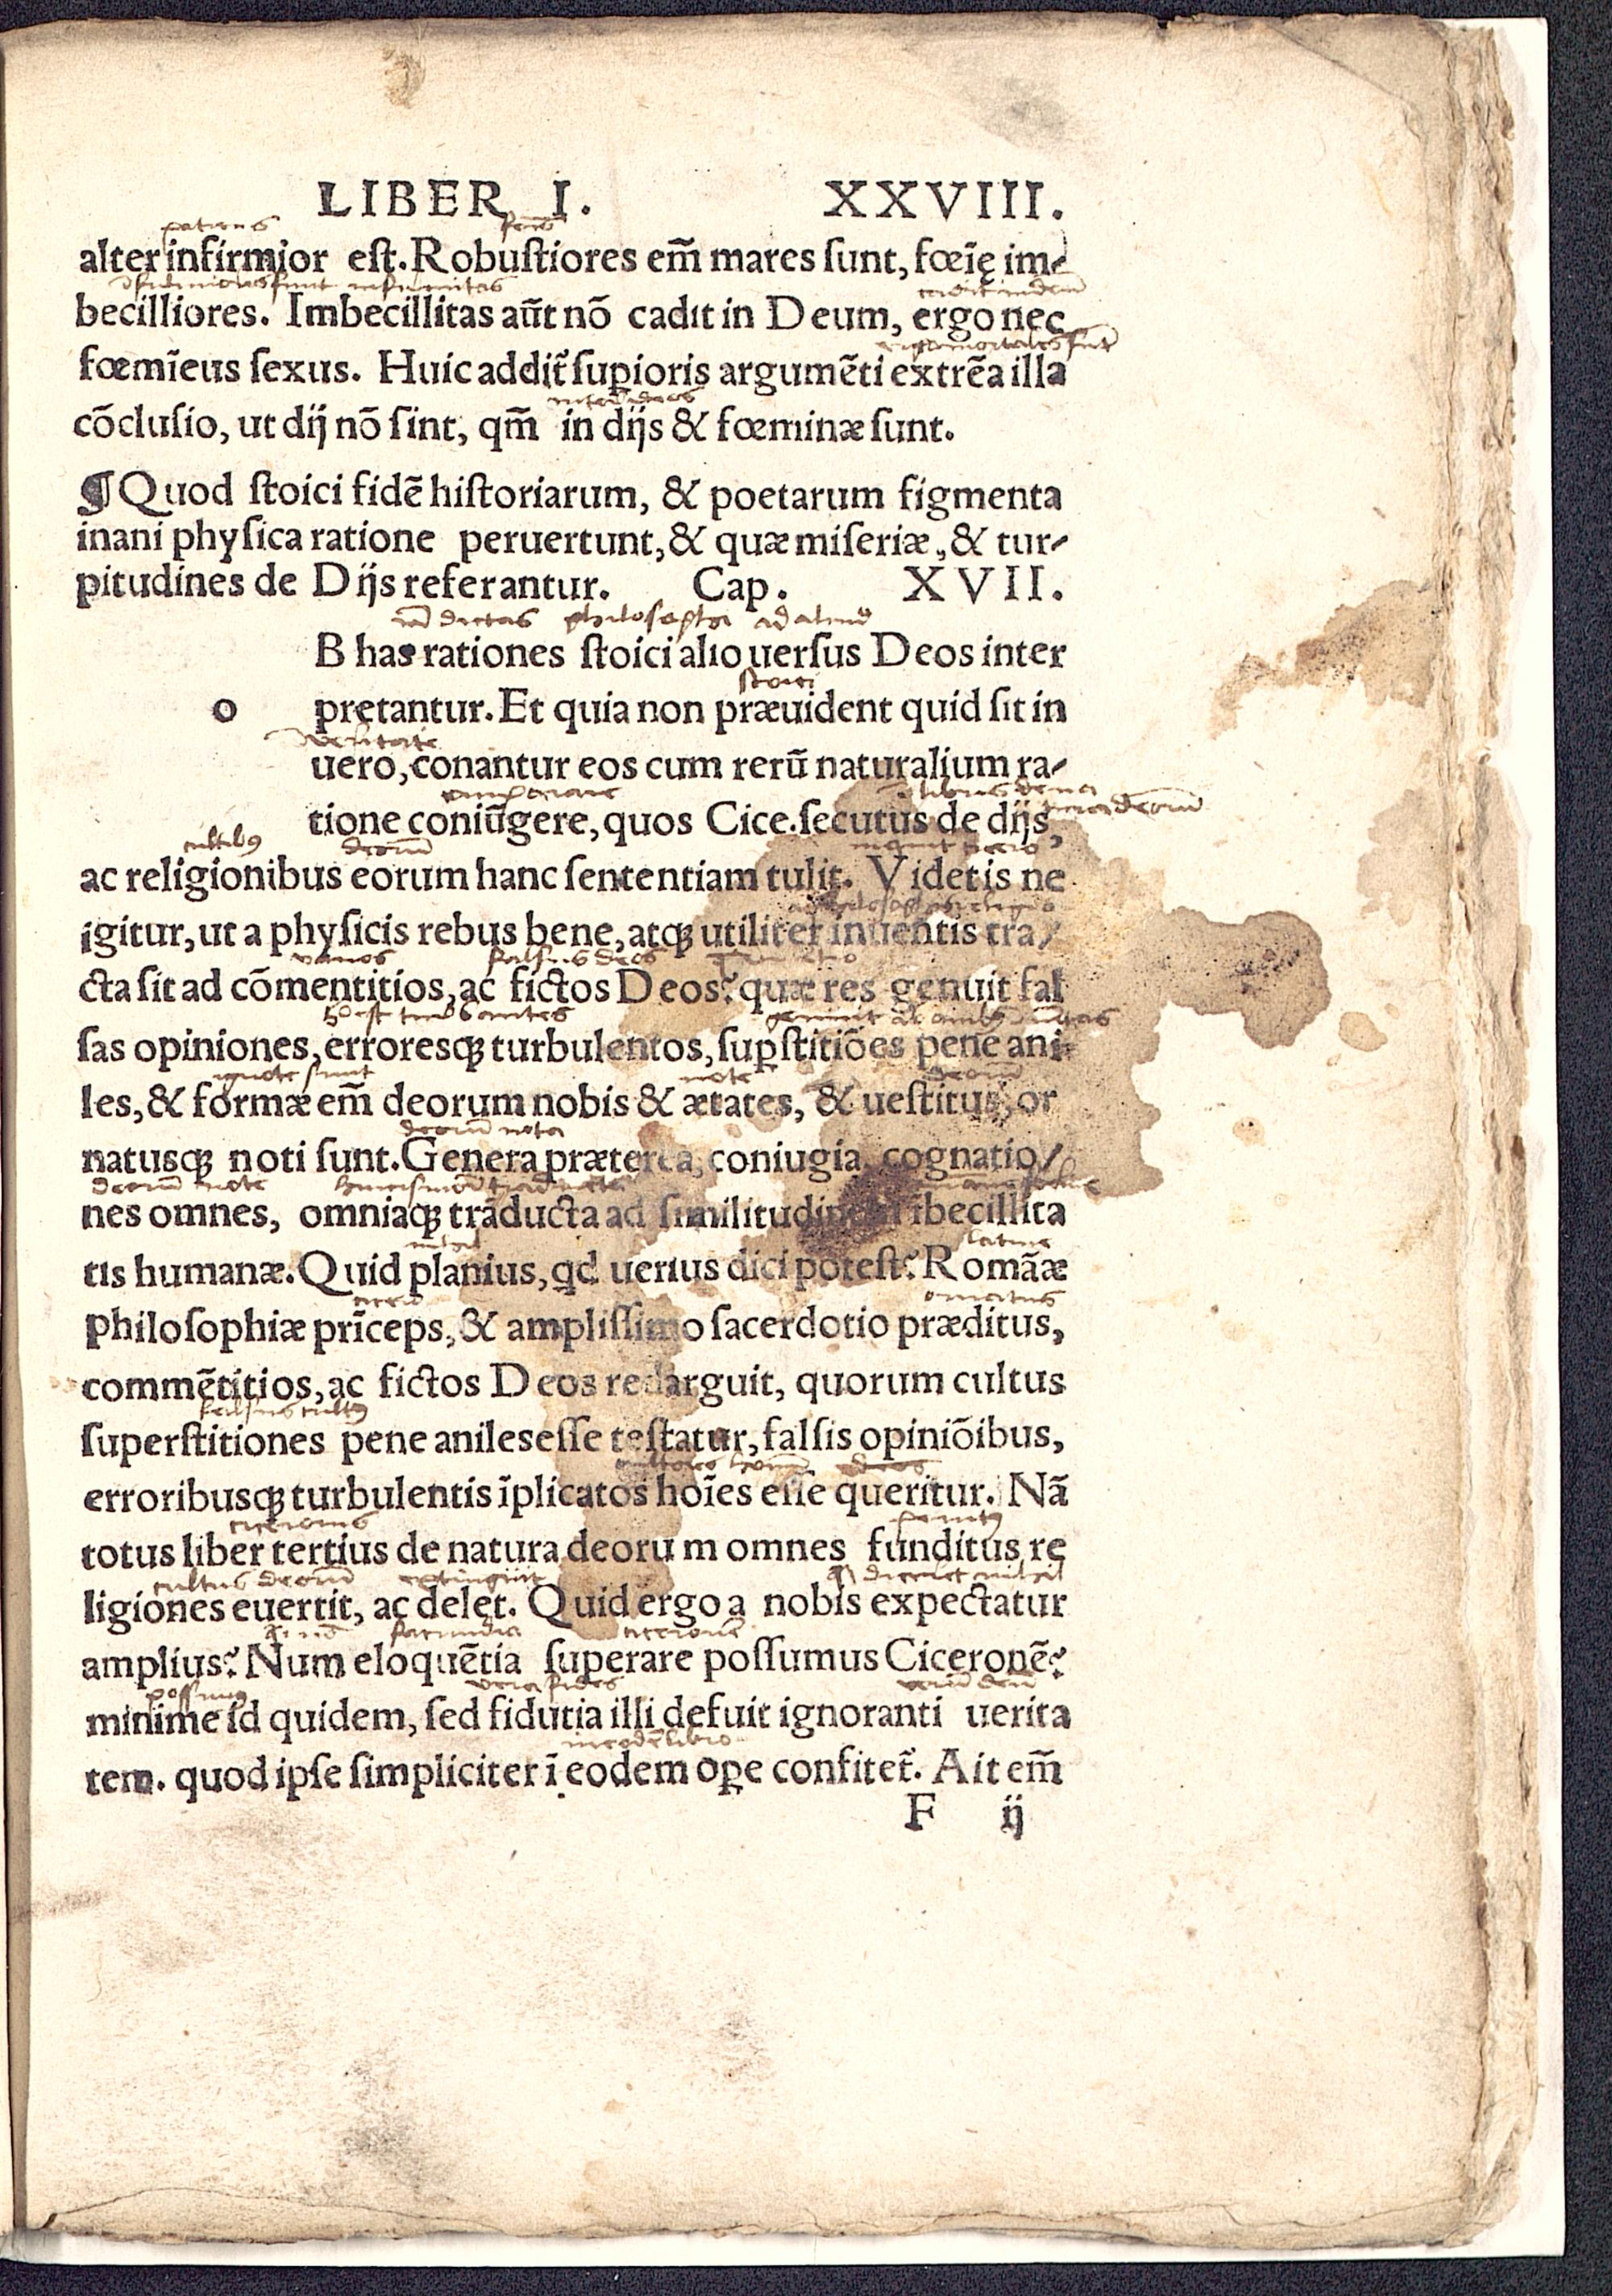 LIBER I. XXVIII.
patiens
alter infirmior est. Robustiores em̃ mares sunt, fœĩę im⸗
infirmitas
becilliores. Imbecillitas aũt nõ cadit in Deum, ergo nec
fœmĩeus sexus. Huic addit᷑ supioris argumẽti extrẽa illa
cõclusio, ut dij nõ sint, qm̃ in dijs & fœminæ sunt.
¶ Quod stoici fidẽ historiarum, & poetarum figmenta
inani physica ratione peruertunt, & quæ miseriæ, & tur⸗
pitudines de Dijs referantur. Cap. XVII.
dictas philosophi ad aliud
B has rationes stoici alio uersus Deos inter
stoici
o pretantur. Et quia non præuident quid sit in
veritate
uero, conantur eos cum rerũ naturalium ra⸗
comparare
tione coniũgere, quos Cice. secutus de dijs,
deorũ
ac religionibus eorum hanc sententiam tulit. Videtis ne
igitur, ut a physicis rebus bene, atq̃ utiliter inuentis tra/
vanos falsos deos
cta sit ad cõmentitios, ac fictos Deos? quæ res genuit fal
sas opiniones, erroresq̃ turbulentos, supstitiões pene ani⸗
note sunt note deorũ
les, & formæ em̃ deorum nobis & ætates, & uestitus, or
deorũ nota
natusq̃ noti sunt. Genera præterea, coniugia, cognatio/
deorũ note
nes omnes, omniaq̃ trãducta ad similitudinem ĩbecillita
latine
tis humanæ. Quid planius, qd uerius dici potest? Romãæ
cicero ornatus
philosophiæ prĩceps, & amplissimo sacerdotio præditus,
commẽtitios, ac fictos Deos redarguit, quorum cultus
superstitiones pene aniles esse testatur, falsis opiniõibus,
erroribusq̃ turbulentis ĩplicatos hoĩes esse queritur. Nã
ciceronis
totus liber tertius de natura deoru m omnes funditus re
cultus deorũ
ligiones euertit, ac delet. Quid ergo a nobis expectatur
facundia ciceronẽ
amplius? Num eloquẽtia superare possumus Ciceronẽ?
possumus vera fides verũ deũ
minime id quidem, sed fidutia illi defuit ignoranti uerita
in eodẽ libro
tem. quod ipse simpliciter ĩ eodem ope confitet᷑. Ait em̃
F ij